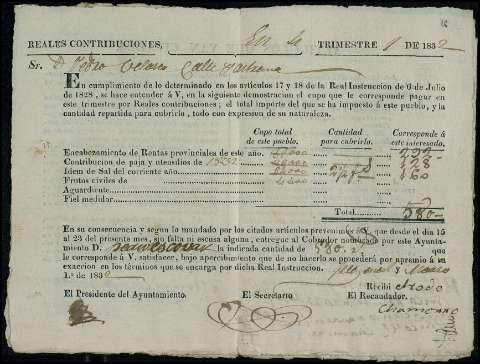 REALES CONTRIBUCIONES, TRIMESTRE 1 DE 1832
Sr. D. Pedro
En cumplimiento de lo determinado en los artículos 17 y 18 de la Real Instruccion de 6 de Julio
de 1828, se hace entender á V, en la siguiente demostracion el cupo que le corresponde pagar en
este trimestre por Reales contribuciones; el total importe del que se ha impuesto á este pueblo, y la
cantidad repartida para cubrirlo, todo con expresion de su naturaleza.
Cupo total de este pueblo. Cantidad para cubrirlo. Corresponde á este interesado.
Encabezamiento de Rentas provinciales de este año.
Contribucion de paja y utensilios de 1832 128
Idem de Sal del corriente año.
Frutos civiles de
Aguardiente
Fiel medidor
Total 580
En su consecuencia y segun lo mandado por los citados artículos prevenimos á V, que desde el dia 15
al 23 del presente mes, sin falta ni escusa alguna, entregue al Cobrador nombrado por este Ayunta-
miento D. la indicada cantidad de 580
que le corresponde á V. satisfacer, bajo apercibimiento que de no hacerlo se procederá por apremio á su
exaccion en los términos que se encarga por dicha Real Instruccion. y Marzo
1.º de 1832
Recibí
El Presidente del Ayuntamiento. El Secretario El Recaudador.
Chamorro